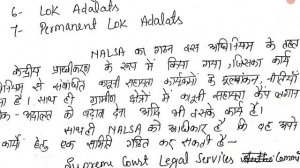 6- Lok Adalats
7- Permanent Lok Adalats
NALSA का गठन इस अधिनियम के तहत
केन्द्रीय प्राधिकरण के रूप में किया गया जिसका कार्य
से संबंधित कानूनी सहायता कार्यक्रमों के मूल्यांकन, नीतियों
है। साथ ही ग्रामीण क्षेत्रों में कानूनी सहायता कैंप लगाना
लोक-अदालत को बढ़ावा देना आदि भी इसके कार्य हैं।
साथ ही NALSA को अधिकार है कि वह अपने
कार्यों हेतु एक समिति गठित कर सकती है-
Supreme Court Legal Services